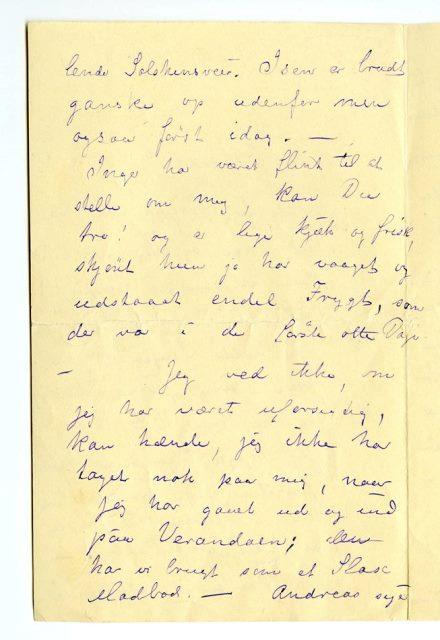 lende Solskinsveir. Isen er brudt
ganske op udenfor men
ogsaa først idag. —
Inga har været flink til at
stelle om mig, kan Du
tro! og er lige kjæk og frisk,
skjønt hun jo har vaaget og
udstaaet endel Frygt, som
der var i de første otte Dage
— Jeg ved ikke, om
jeg har været uforsigtig,
kan hænde, jeg ikke har
taget nok paa mig, naar
jeg har gaaet ud og ind
paa Verandaen; den
har vi brugt som et Slags
Madbod. — Andreas